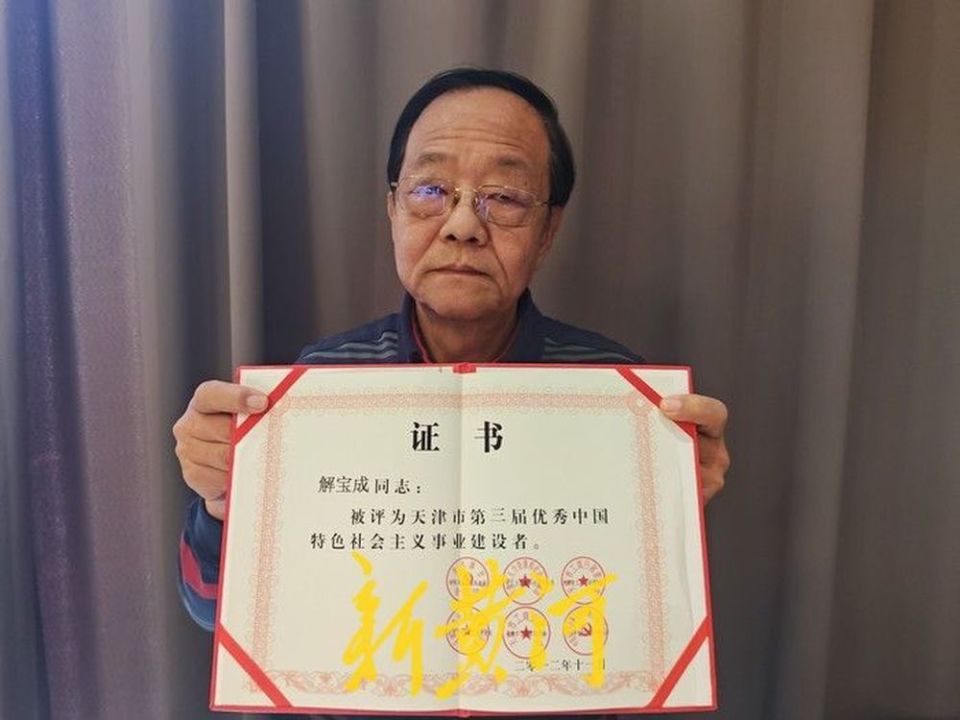 证书
解宝成同志：
被评为天津市第三届优秀中国
特色社会主义事业建设者。
新黄河
二〇一二年十一月